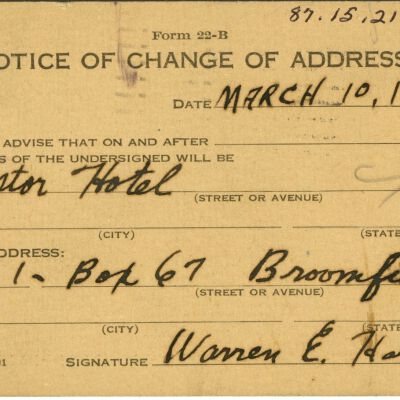 87.15.21
Form 22-B
OTICE OF CHANGE OF ADDRESS
DATE MARCH 10, 1
ADVISE THAT ON AND AFTER
S OF THE UNDERSIGNED WILL BE
stor Hotel
(STREET OR AVENUE)
(CITY) (STATE
DDRESS:
1- Box 67 Broomfi
(STREET OR AVENUE)
(CITY) (STATE
01 SIGNATURE Warren E. Ha